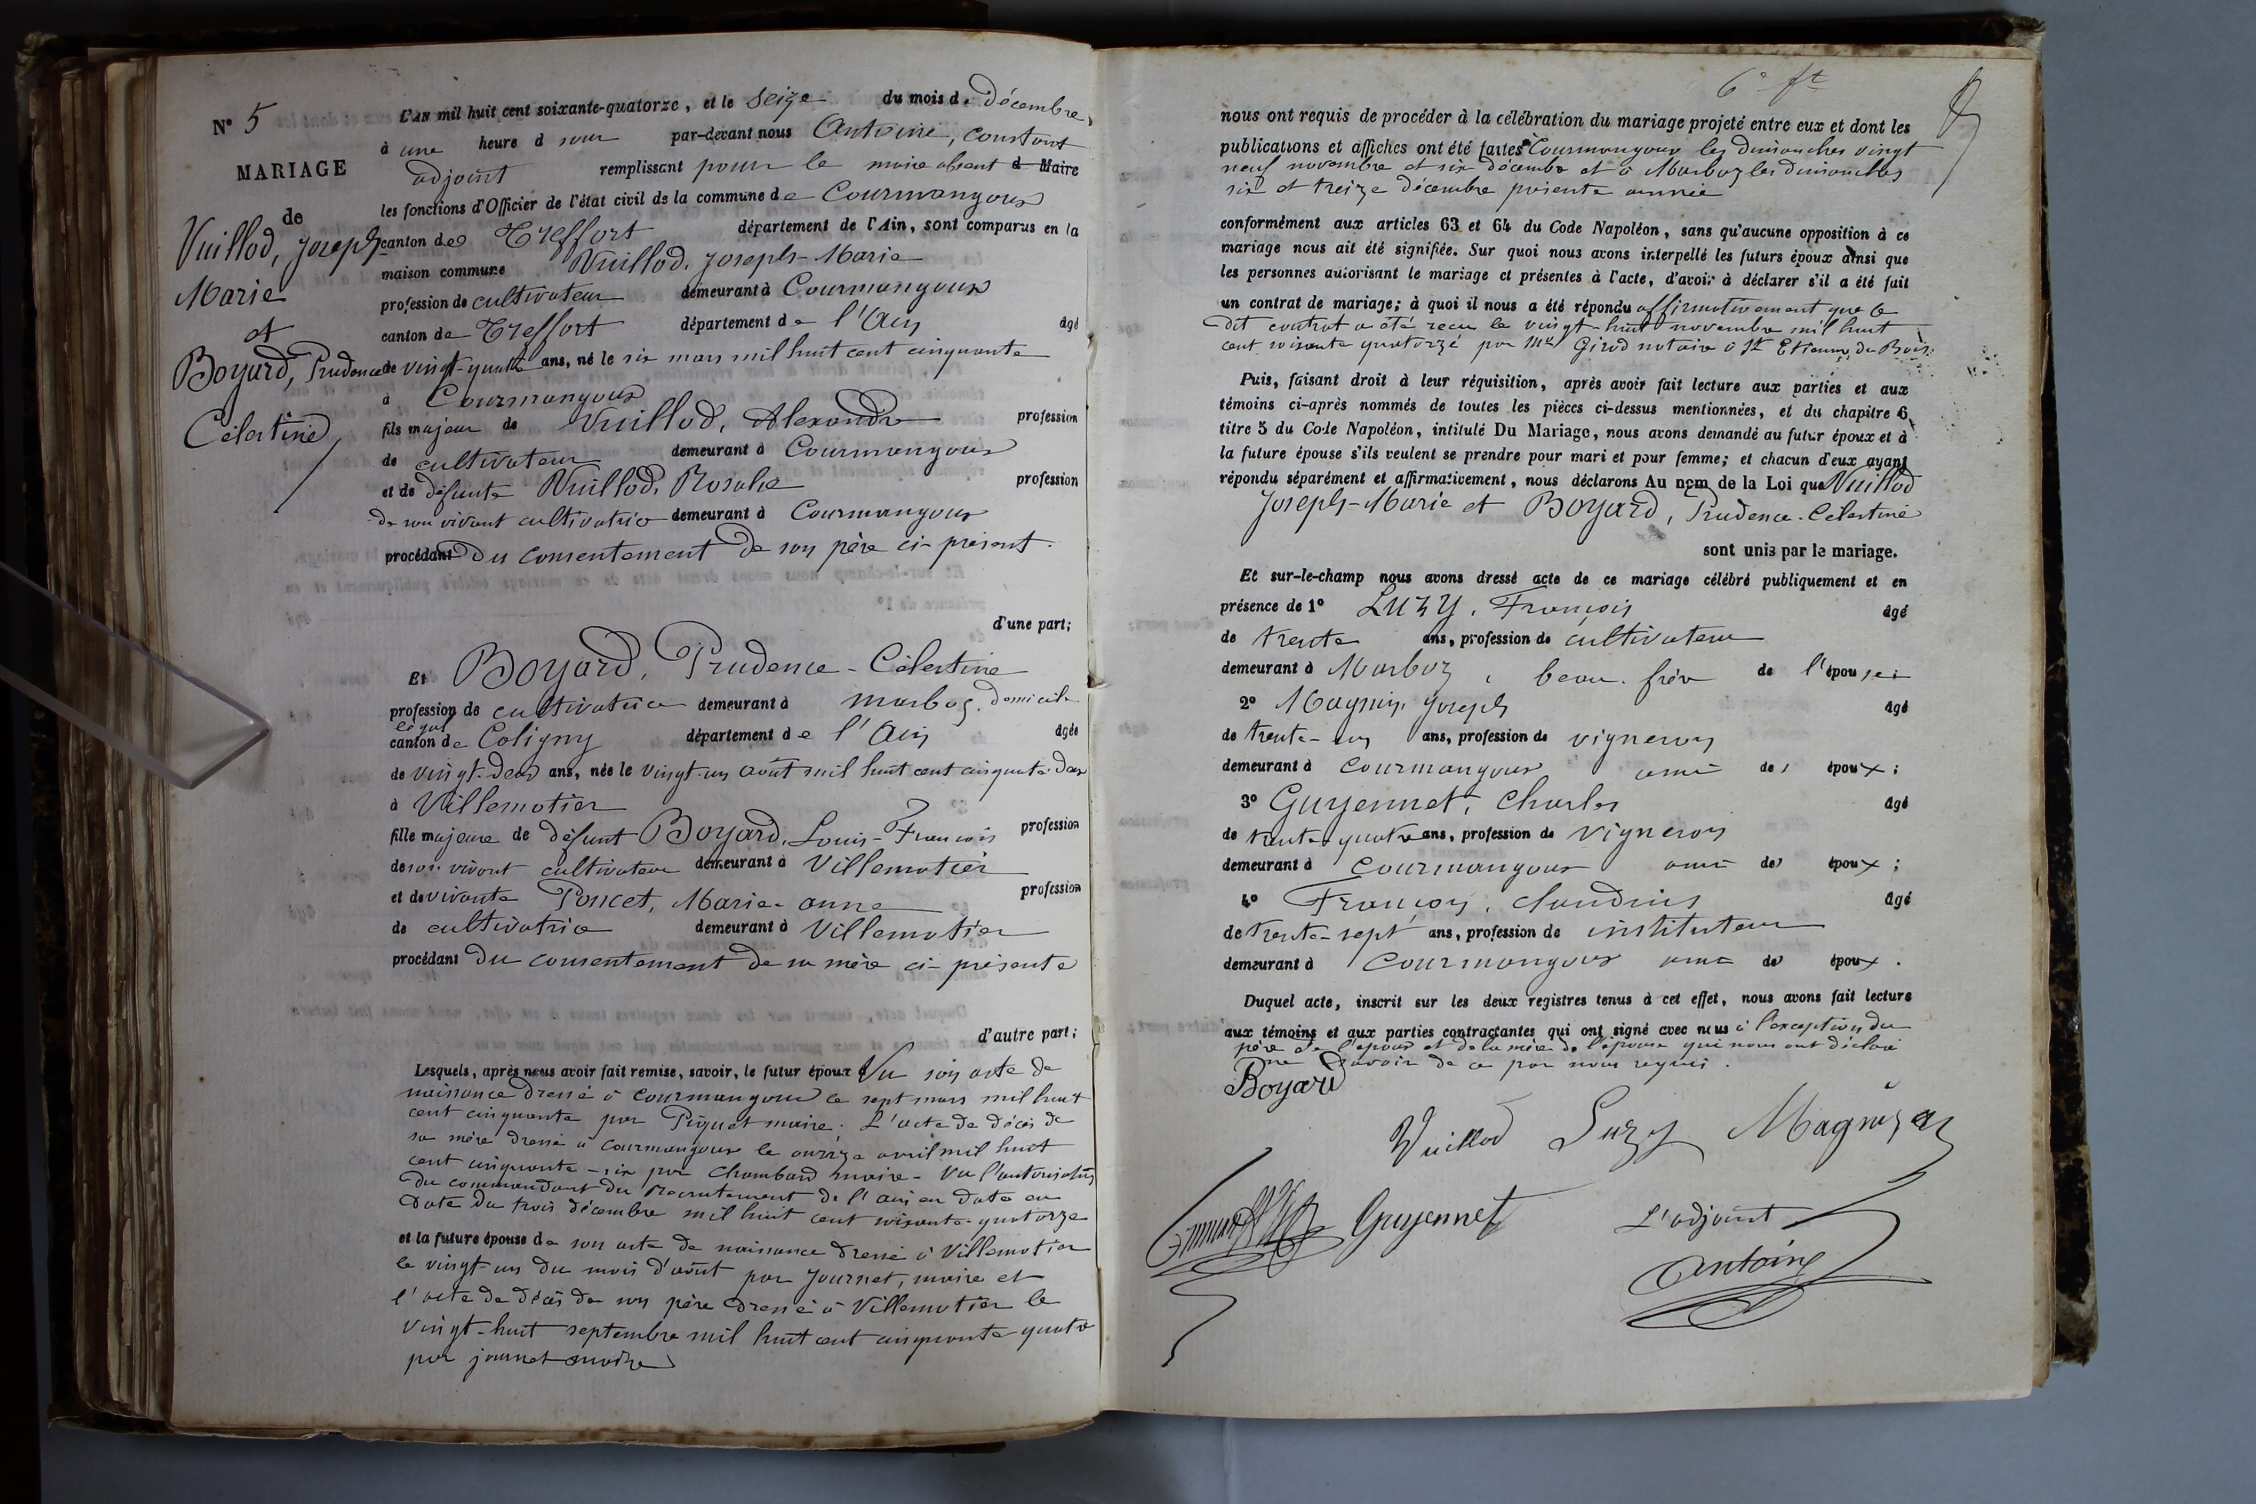 N° 5
MARIAGE
de
Vuillod, Joseph-
Marie
et
Boyard, Prudence
Célestine
L'an mil huit cent soixante-quatorze, et le seize du mois de Décembre,
à une heure d soir par-devant nous Antoine, Constant
adjoint remplissant pour le maire absent d Maire
les fonctions d'Officier de l'état civil de la commune de Courmangoux
canton de Treffort département de l'Ain, sont comparus en la
maison commune Vuillod, Joseph-Marie
profession de cultivateur demeurant à Courmangoux
canton de Treffort département de l'Ain âgé
de vingt-quatre ans, né le six mars mil huit cent cinquante
à Courmangoux
fils majeur de Vuillod, Alexandre profession
de cultivateur demeurant à Courmangoux
et de défunte Vuillod, Rosalie profession
de son vivant cultivatrice demeurant à Courmangoux
procédant du consentement de son père ci-présent.
d'une part;
Et Boyard, Prudence-Célestine
profession de cultivatrice demeurant à Marboz, domicile
légal
canton de Coligny département de l'Ain âgée
de vingt-deux ans, née le vingt-un août mil huit cent cinquante-deux
à Villemotier
fille majeure de défunt Boyard, Louis-François profession
de son vivant cultivateur demeurant à Villemotier
et de vivante Poncet, Marie-anne profession
de cultivatrice demeurant à Villemotier
procédant du consentement de sa mère ci-présente
d'autre part;
Lesquels, après nous avoir fait remise, savoir, le futur époux Vu son acte de
naissance dressé à Courmangoux le sept mars mil huit
cent cinquante par Piquet maire. L'acte de décès de
sa mère dressé à Courmangoux le onze avril mil huit
cent cinquante-six par Chambard maire - Vu l'autorisation
du commandant du Recrutement de l'Ain en date en
date du trois décembre mil huit cent soixante-quatorze
et la future épouse de son acte de naissance dressé à Villemotier
le vingt-un du mois d'août par Journet, maire et
l'acte de décès de son père dressé à Villemotier le
vingt-huit septembre mil huit cent cinquante-quatre
par journet maire
6e ft
nous ont requis de procéder à la célébration du mariage projeté entre eux et dont les
publications et affiches ont été faites à Courmangoux les dimanches vingt
neuf novembre et six décembre et à Marboz les dimanches
six et treize décembre présente année
conformément aux articles 63 et 64 du Code Napoléon, sans qu'aucune opposition à ce
mariage nous ait été signifiée. Sur quoi nous avons interpellé les futurs époux ainsi que
les personnes autorisant le mariage et présentes à l'acte, d'avoir à déclarer s'il a été fait
un contrat de mariage; à quoi il nous a été répondu affirmativement que le
dit contrat a été recu le vingt-huit novembre mil huit
cent soixante quatorze par Me Girod notaire à St Etienne du Bois.
Puis, faisant droit à leur réquisition, après avoir fait lecture aux parties et aux
témoins ci-après nommés de toutes les pièces ci-dessus mentionnées, et du chapitre 6,
titre 5 du Code Napoléon, intitulé Du Mariage, nous avons demandé au futur époux et à
la future épouse s'ils veulent se prendre pour mari et pour femme; et chacun d'eux ayant
répondu séparément et affirmativement, nous déclarons Au nom de la Loi que Vuillod
Joseph-Marie et Boyard, Prudence-Célestine
sont unis par le mariage.
Et sur-le-champ nous avons dressé acte de ce mariage célébré publiquement et en
présence de 1° Luzy, François âgé
de trente ans, profession de cultivateur
demeurant à Marboz, beau-frère de l'épouse;
2° Magnin, Joseph âgé
de trente-un ans, profession de vigneron
demeurant à Courmangoux ami de l'époux;
3° Guyennet, Charles âgé
de trente-quatre ans, profession de vigneron
demeurant à Courmangoux ami de époux;
4° Françon, Claudius âgé
de trente-sept ans, profession de instituteur
demeurant à Courmangoux ami de époux.
Duquel acte, inscrit sur les deux registres tenus à cet effet, nous avons fait lecture
aux témoins et aux parties contractantes qui ont signé avec nous à l'exception du
père de l'époux et de la mère de l'épouse qui nous ont déclaré
ne savoir de ce par nous requis.
Boyard
Vuillod Luzy Magnin
Guyennet L'adjoint
Antoine